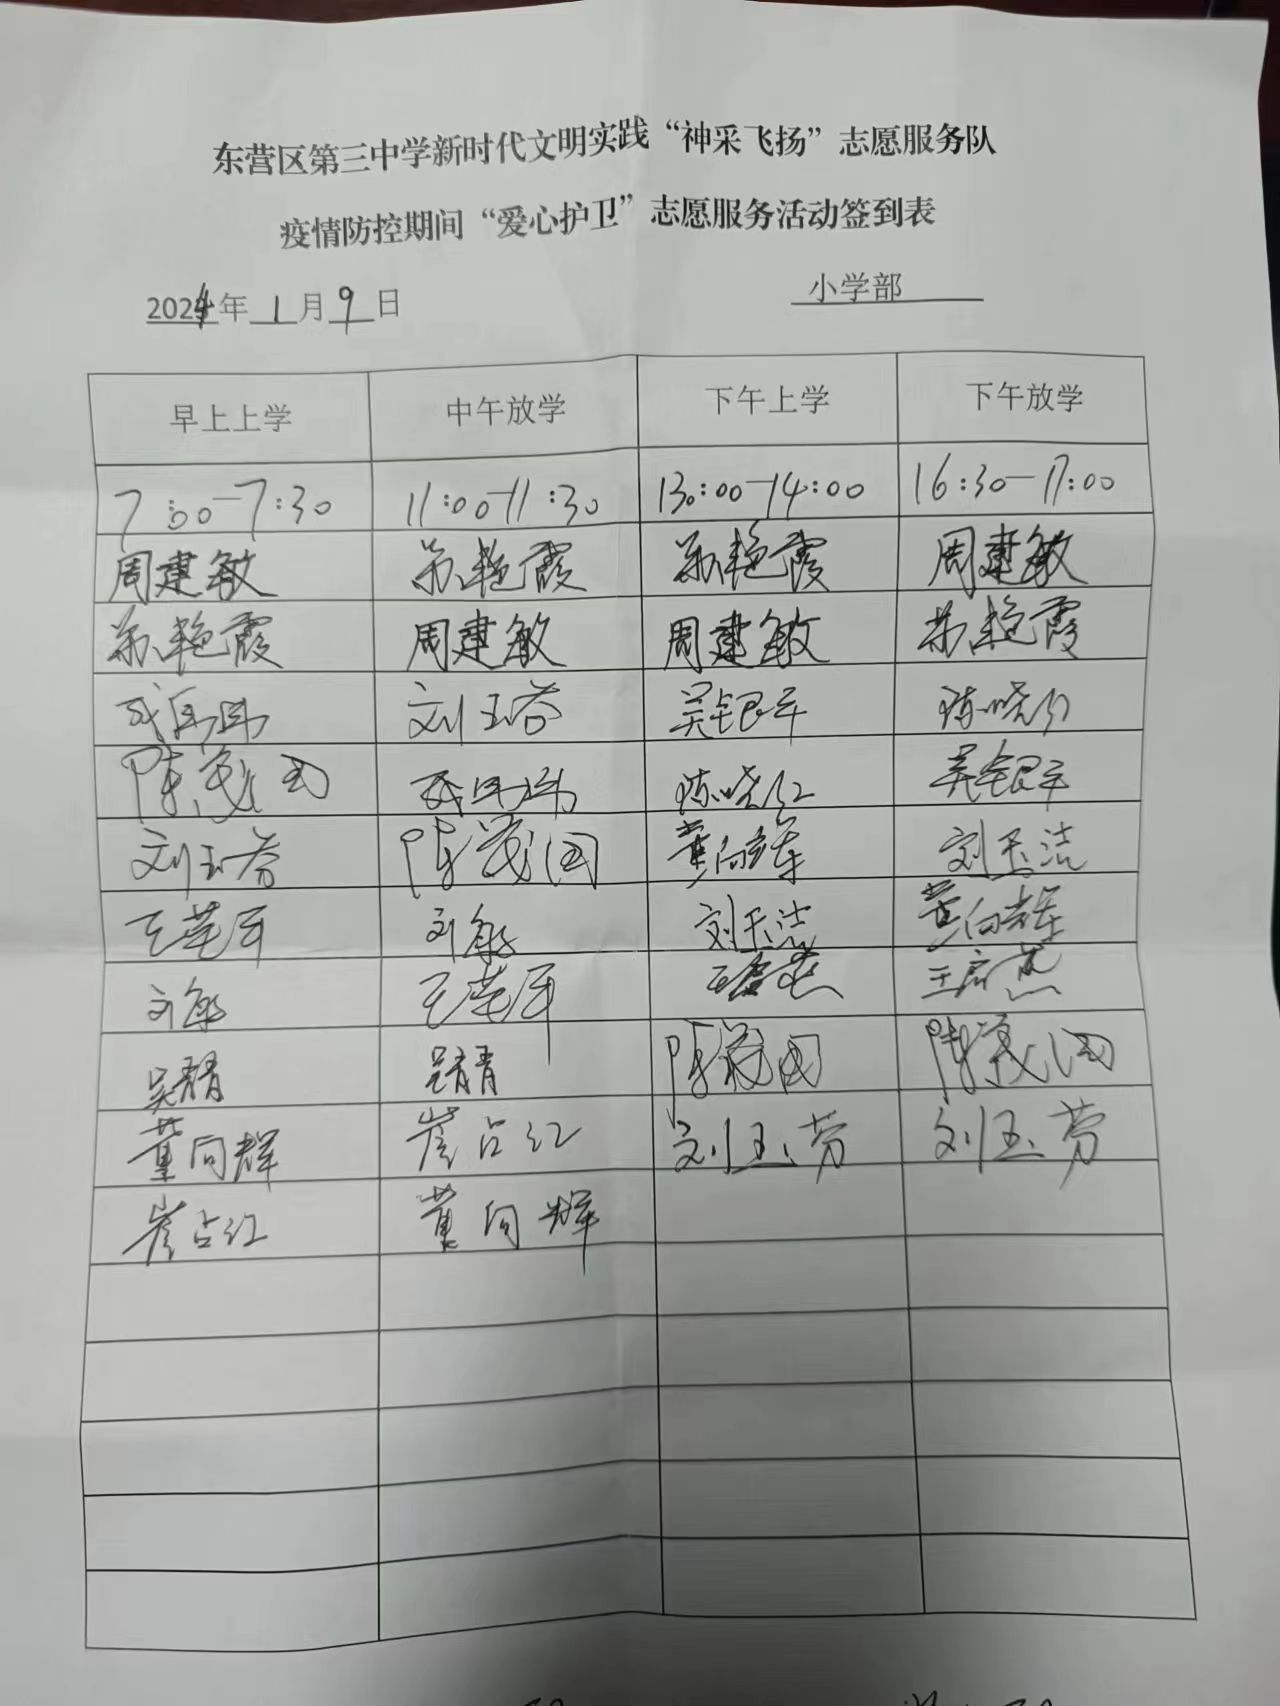 东营区第三中学新时代文明实践“神采飞扬”志愿服务队
疫情防控期间“爱心护卫”志愿服务活动签到表
2024年 1月9日 小学部
早上上学 中午放学 下午上学 下午放学
7:00-7:30 11:00-11:30 13:00-14:00 16:30-17:00
周建敏 苏艳霞 苏艳霞 周建敏
苏艳霞 周建敏 周建敏 苏艳霞
刘玉芬 吴银平 陈晓红
陈茂国 陈晓红 吴银平
刘玉芬 陈茂国 黄向辉 刘玉洁
刘敏 刘玉洁 黄向辉
刘敏
吴青 吴青 陈茂国 陈茂国
董向辉 崔占红 刘玉芳 刘玉芳
崔占红 董向辉